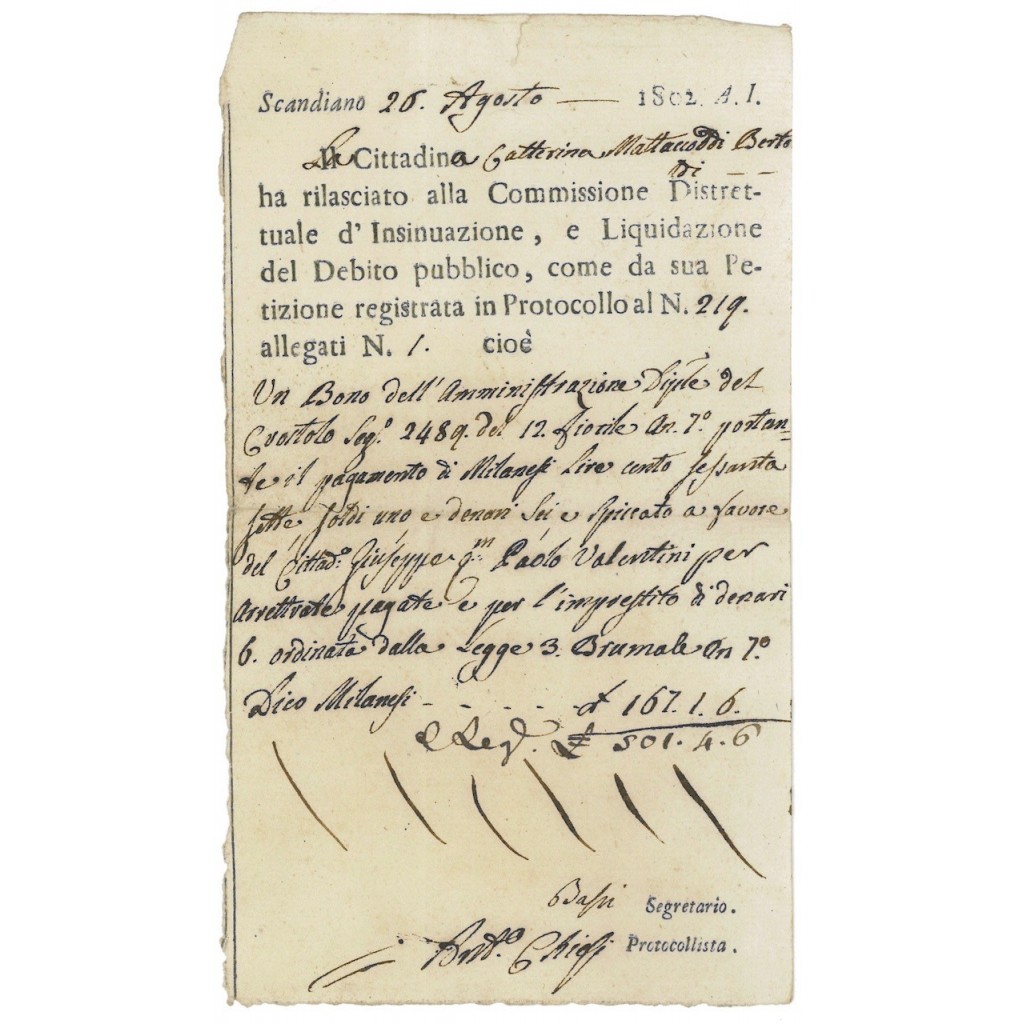 Scandiano 26. Agosto — 1802. A. I.
La Cittadina Catterina Mattacoddi Berto
di - -
ha rilasciato alla Commissione Distret-
tuale d' Insinuazione, e Liquidazione
del Debito pubblico, come da sua Pe-
tizione registrata in Protocollo al N. 219.
allegati N. 1. cioè
Un Bono dell' Amministrazione Diple del
Crostolo Seg.º 2489. del 12. fiorile An. 7.º portan=
te il pagamento di Milanesi Lire cento sessanta
sette soldi uno e denari sei e spiccato a favore
del Cittad.º Giuseppe qm Paolo Valentini per
Arretrate pagate e per l' imprestito di denari
6. ordinata dalla Legge 3. Brumale An 7.º
Dico Milanesi - - - - £ 167. 1. 6.
£ 501. 4. 6
Segretario.
Ant.º Chiesi Protocollista.